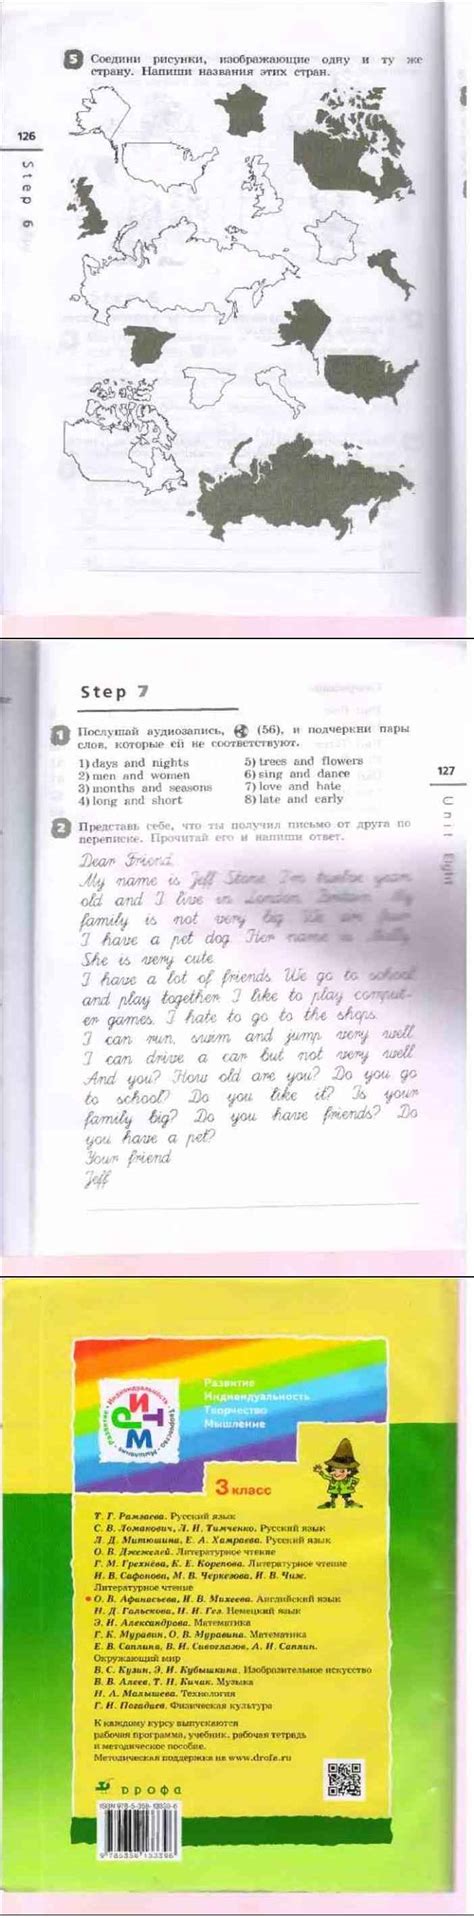 5 Соедини рисунки, изображающие одну и ту же
страну. Напиши названия этих стран.
126
Step 6
Step 7
1 Послушай аудиозапись, (56), и подчеркни пары
слов, которые ей не соответствуют.
1) days and nights
2) men and women
3) months and seasons
4) long and short
5) trees and flowers
6) sing and dance
7) love and hate
8) late and early
127
Unit Eight
2 Представь себе, что ты получил письмо от друга по
переписке. Прочитай его и напиши ответ.
Dear Friend,
My name is Jeff Stone. I'm twelve years
old and I live in London, Britain. My
family is not very big. We are four.
I have a pet dog. Her name is
She is very cute.
I have a lot of friends. We go to school
and play together. I like to play comput-
er games. I hate to go to the shops.
I can run, swim and jump very well.
I can drive a car but not very well.
And you? How old are you? Do you go
to school? Do you like it? Is your
family big? Do you have friends? Do
you have a pet?
Your friend
Jeff
РИТМ
Развитие • Индивидуальность • Творчество • Мышление
Развитие
Индивидуальность
Творчество
Мышление
3 класс
Т. Г. Рамзаева. Русский язык
С. В. Ломакович, Л. И. Тимченко. Русский язык
Л. Д. Митюшина, Е. А. Хамраева. Русский язык
О. В. Джежелей. Литературное чтение
Г. М. Грехнёва, К. Е. Корепова. Литературное чтение
И. В. Сафонова, М. В. Черкезова, И. В. Чиж.
Литературное чтение
• О. В. Афанасьева, И. В. Михеева. Английский язык
Н. Д. Гальскова, Н. И. Гез. Немецкий язык
Э. И. Александрова. Математика
Г. К. Муравин, О. В. Муравина. Математика
Е. В. Саплина, В. И. Сивоглазов, А. И. Саплин.
Окружающий мир
В. С. Кузин, Э. И. Кубышкина. Изобразительное искусство
В. В. Алеев, Т. Н. Кичак. Музыка
Н. А. Малышева. Технология
Г. И. Погадаев. Физическая культура
К каждому курсу выпускаются
рабочая программа, учебник, рабочая тетрадь
и методическое пособие.
Методическая поддержка на www.drofa.ru
дрофа